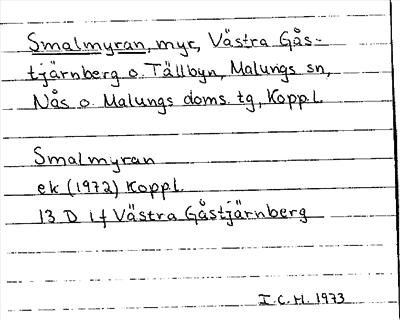 Smalmyran, myr, Västra Gås-
tjärnberg o. Tällbyn, Malungs sn,
Nås o. Malungs doms. tg, Koppl.
Smalmyran
ek (1972) Koppl.
13 D 1f Västra Gåstjärnberg
I.C.H. 1973